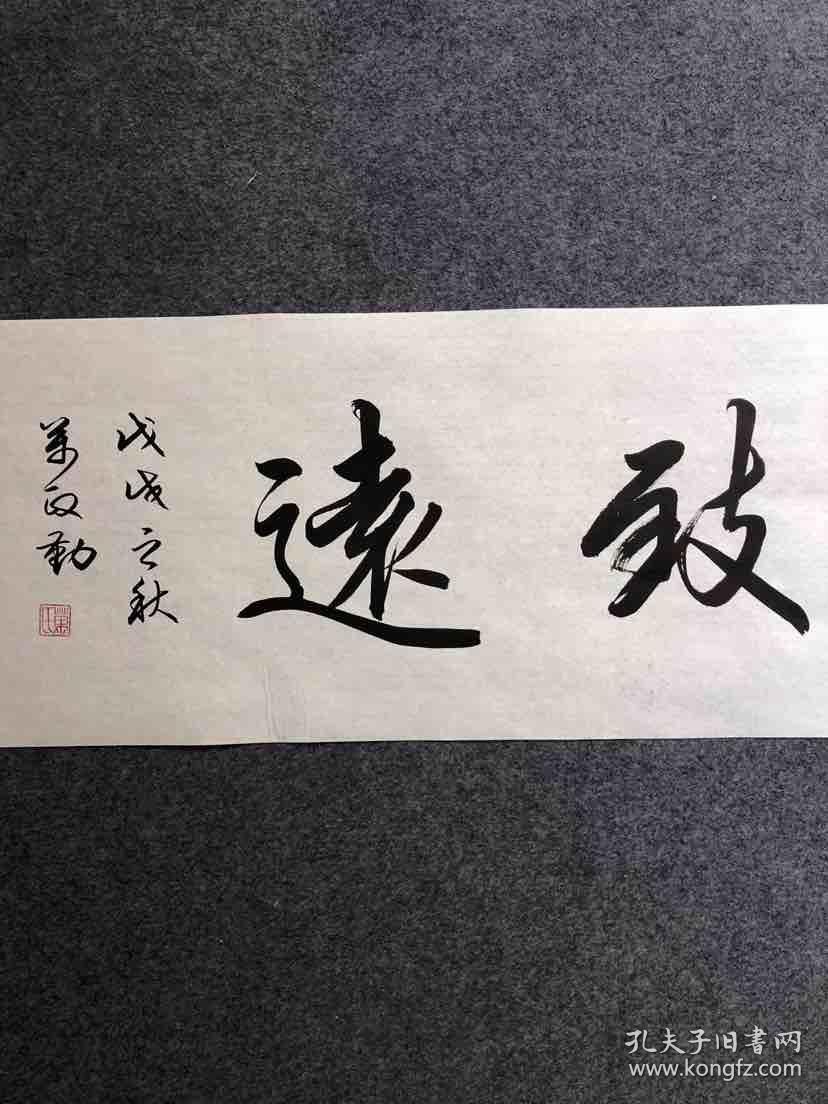 致遠
戊戌之秋
勤
孔夫子旧書网
www.kongfz.com